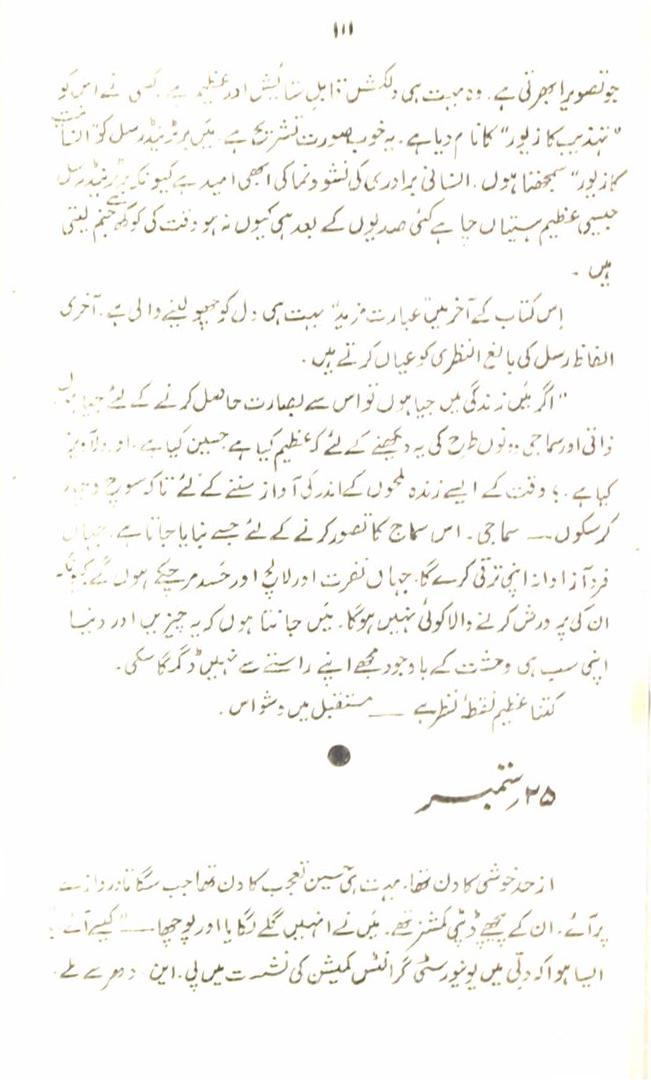 ۱۱۱
جو تصویر ابھرتی ہے۔ وہ بہت ہی دلکش قابلِ ستائش اور عظیم ہے۔ کسی نے اس کو
"تہذیب کا زیور" کا نام دیا ہے۔ یہ خوبصورت تشریح ہے۔ میں برٹرینڈرسل کو "انسانیت
کا زیور" سمجھتا ہوں۔ انسانی برادری کی نشوونما کی ابھی امید ہے کیونکہ برٹرینڈرسل
جیسی عظیم ہستیاں چاہے کئی صدیوں کے بعد ہی کیوں نہ ہو وقت کی کوکھ سے جنم لیتی
ہیں ۔
اِس کتاب کے آخر میں "عبارت مزید" بہت ہی دل کو چھو لینے والی ہے۔ آخری
الفاظ رسل کی بالغ النظری کو عیاں کرتے ہیں۔
"اگر میں زندگی میں جیا ہوں تو اس سے بصارت حاصل کرنے کے لئے جیا ہوں
ذاتی اور سماجی دونوں طرح کی یہ دیکھنے کے لئے کہ عظیم کیا ہے حسین کیا ہے۔ اور دلآویز
کیا ہے۔ ؛ وقت کے ایسے زندہ لمحوں کے اندر کی آواز سننے کے لئے تاکہ سوچ
کرسکوں — سماجی۔ اس سماج کا تصور کرنے کے لئے جسے بنایا جاتا ہے۔ جہاں
فرد آزادانہ اپنی ترقی کرے گا۔ جہاں نفرت اور لالچ اور حسد مر چکے ہوں گے کیونکہ
ان کی پرورش کرنے والا کوئی نہیں ہوگا۔ میں جانتا ہوں کہ یہ چیزیں اور دنیا
اپنی سب ہی وحشت کے باوجود مجھے اپنے راستے سے نہیں ڈگمگا سکی۔
کتنا عظیم نقطۂ نظر ہے — مستقبل میں وشواس۔
۲۵ ستمبر
از حد خوشی کا دن تھا۔ بہت ہی حسین تعجب کا دن تھا جب سنگا تا دروازے
پر آئے۔ ان کے پیچھے ڈپٹی کمشنر تھے۔ میں نے انہیں گلے لگایا اور پوچھا — "کیسے آئے
ایسا ہوا کہ دلّی میں یونیورسٹی گرانٹس کمیشن کی نشست میں پی۔ این۔ دھر سے ملے۔